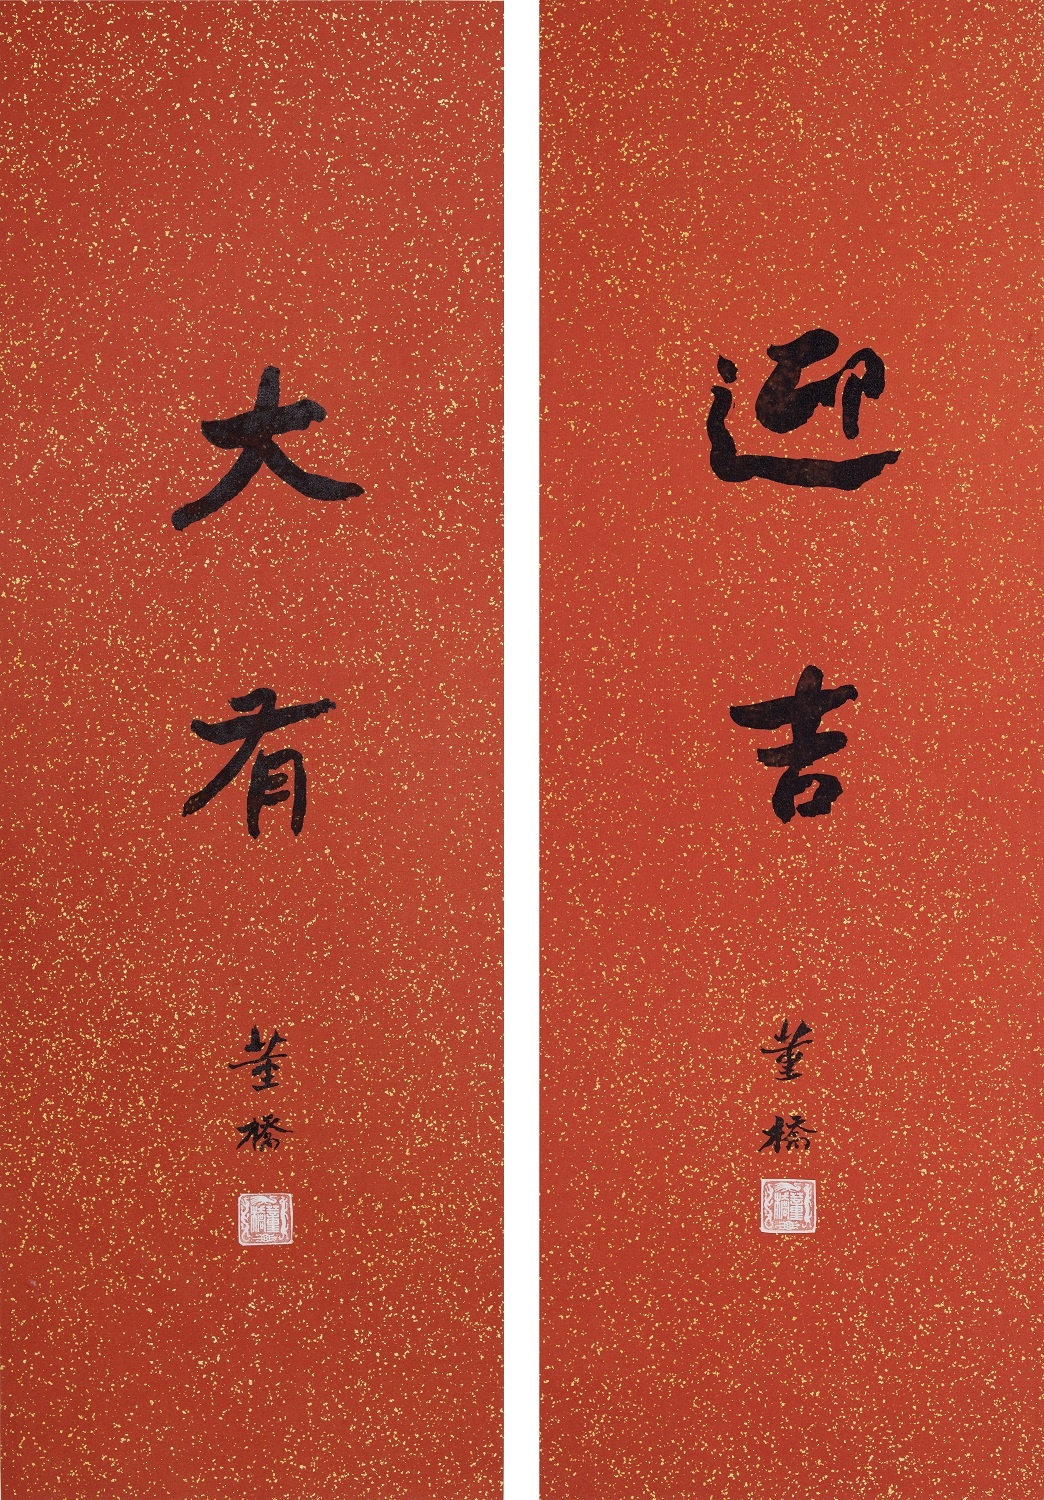 迎吉
董橋
大有
董橋